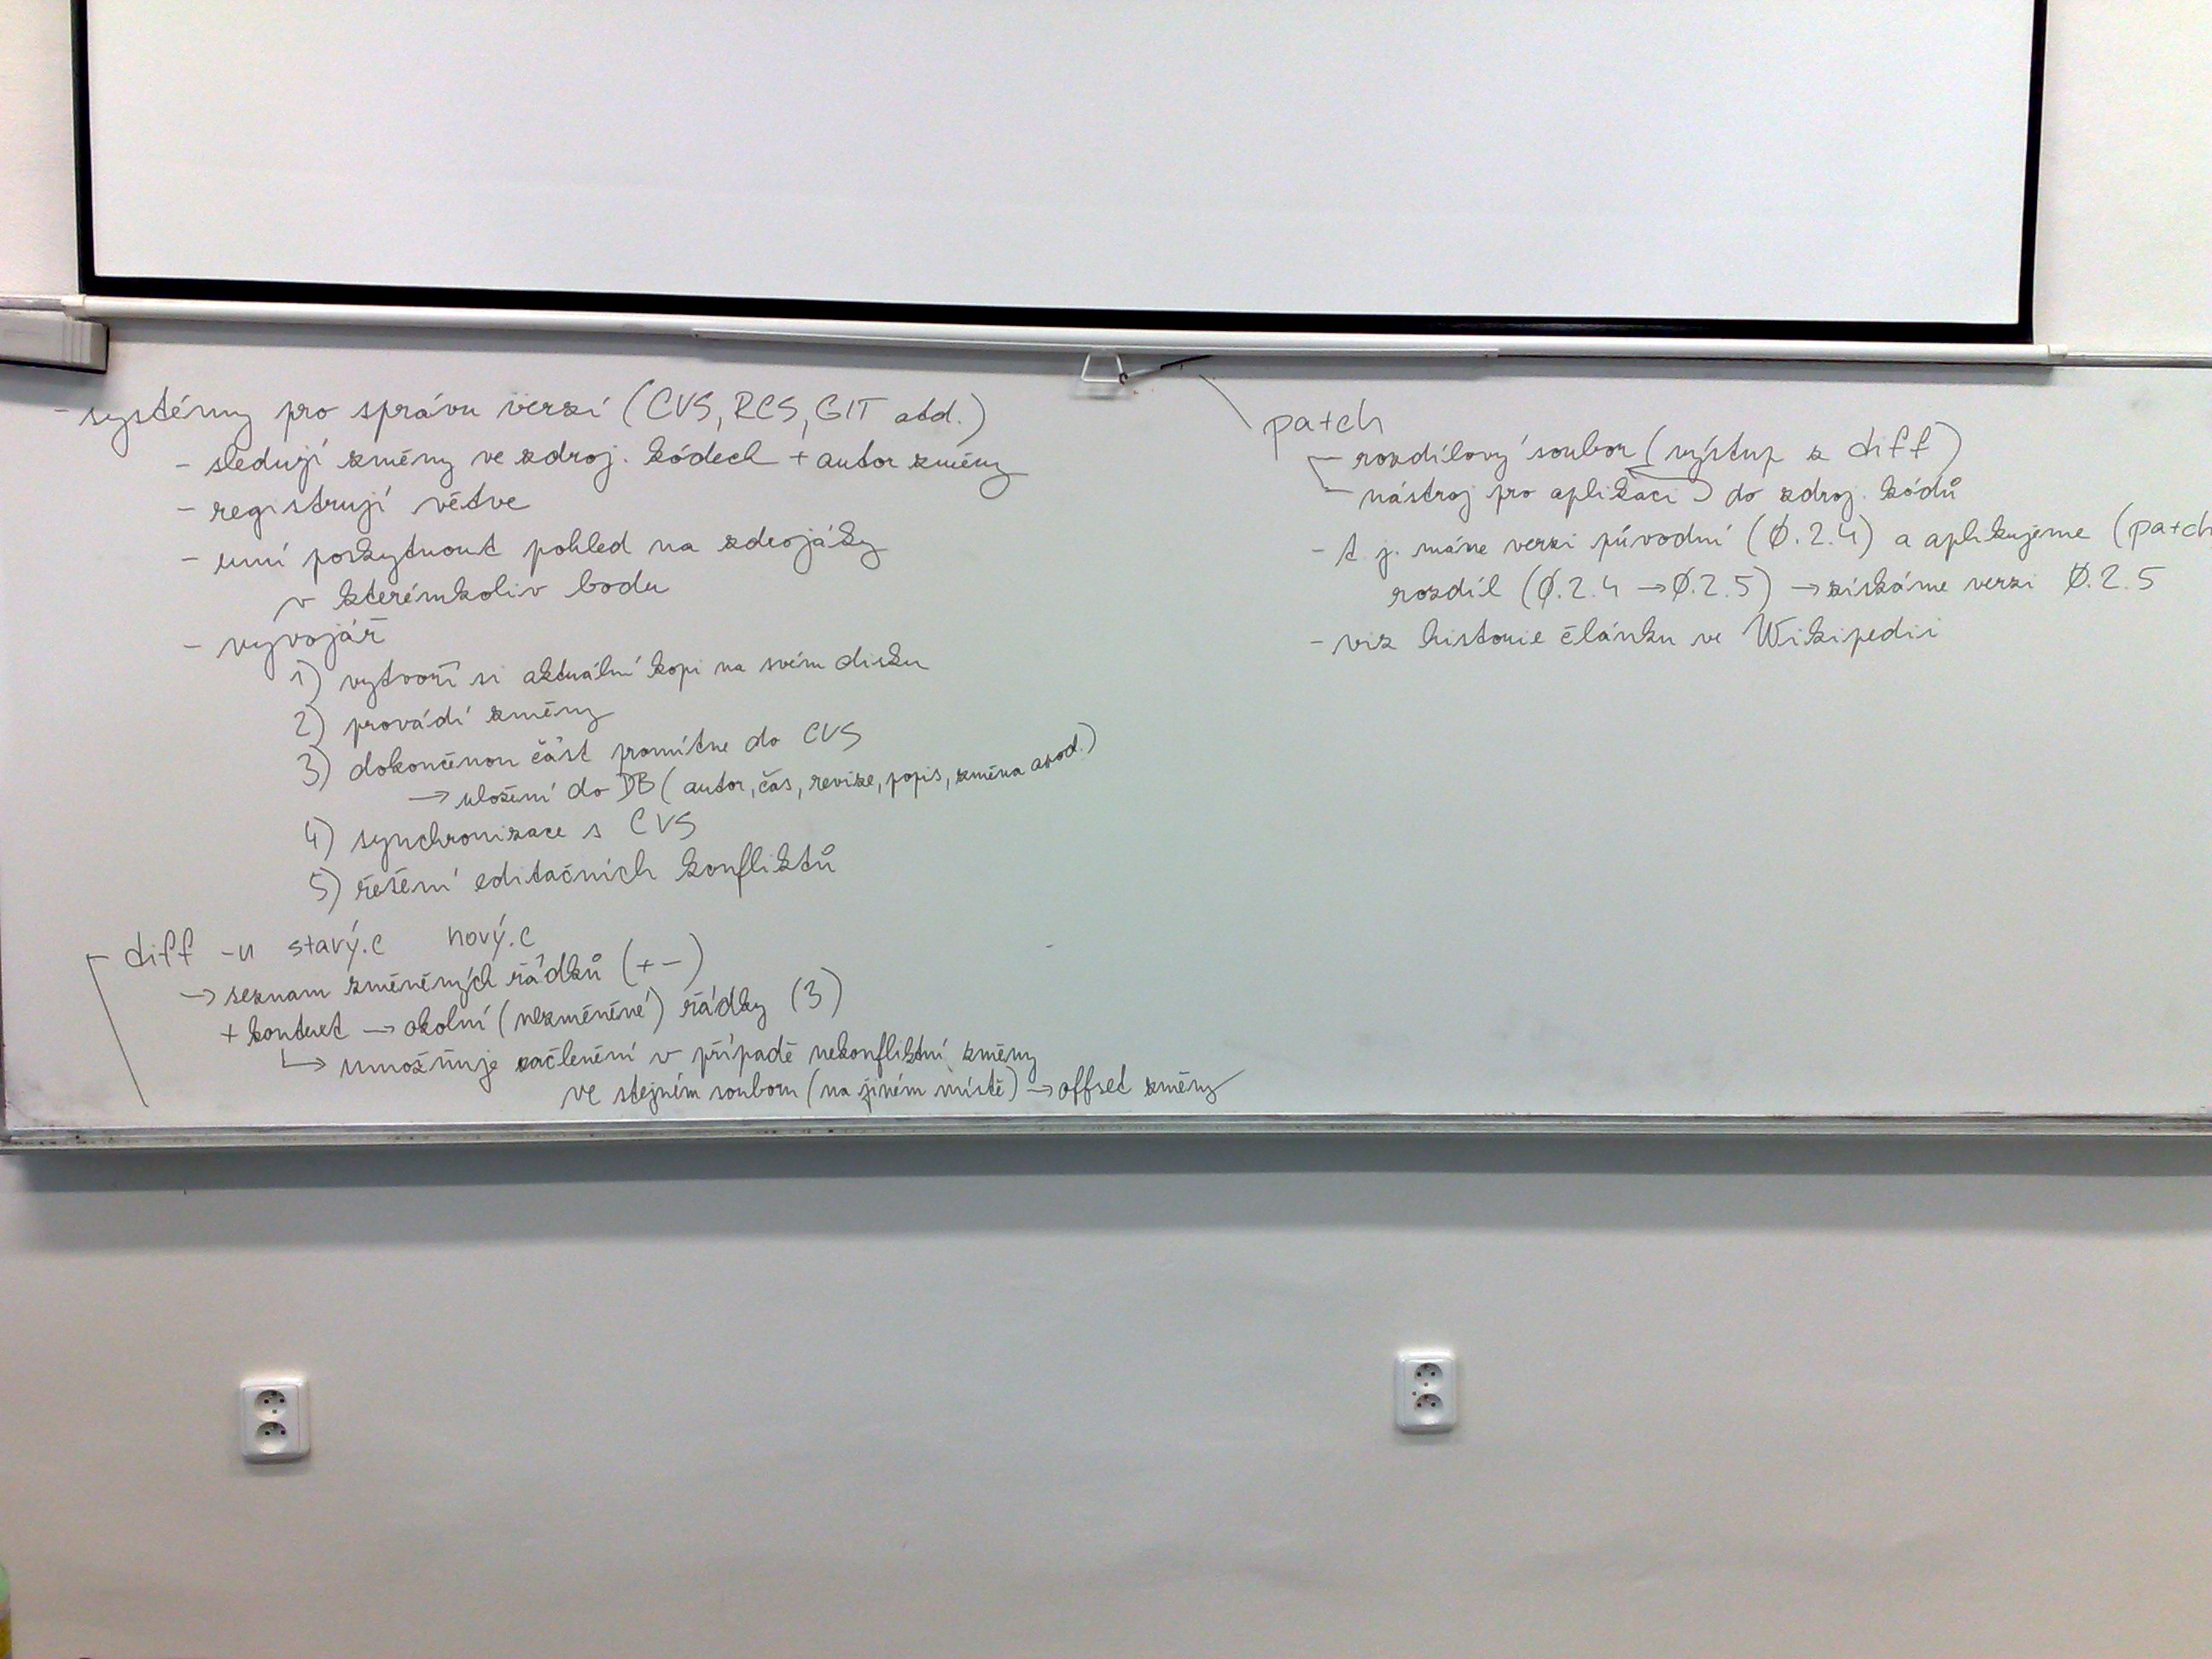 - systémy pro správu verzí (CVS, RCS, GIT atd.)
- sledují změny ve zdroj. kódech + autor změny
- registrují větve
- umí poskytnout pohled na zdrojáky
v kterémkoliv bodu
- vývojář
1) vytvoří si aktuální kopi na svém disku
2) provádí změny
3) dokončenou část promítne do CVS
→ uložení do DB (autor, čas, revize, popis, změna apod.)
4) synchronizace s CVS
5) řešení editačních konfliktů
diff -u starý.c nový.c
→ seznam změněných řádků (+ -)
+ kontext → okolní (nezměněné) řádky (3)
↳ umožňuje začlenění v případě nekonfliktní změny
ve stejném souboru (na jiném místě) → offset změny
patch
- rozdílový soubor (výstup z diff)
- nástroj pro aplikaci do zdroj. kódů
- t. j. máme verzi původní (0.2.4) a aplikujeme (patch
rozdíl (0.2.4 → 0.2.5) → získáme verzi 0.2.5
- viz historie článku ve Wikipedii